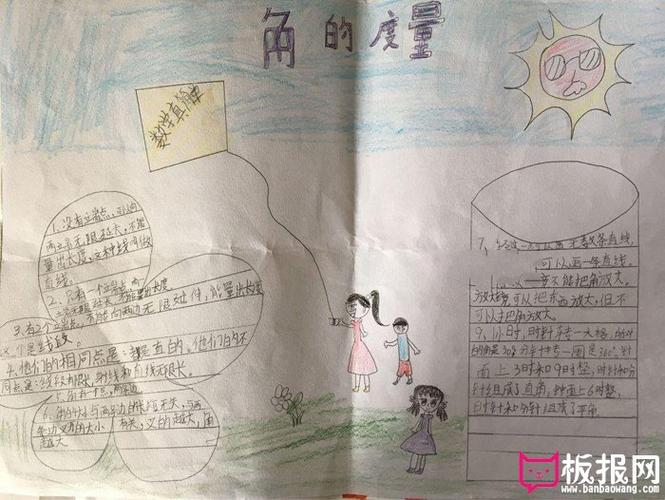 角的度量
数学真简单
1、没有端点,可以向
两端无限延长,不能
量出长度,这种线叫做
直线。
2、只有一个端点,
长度。
3.有2个端点,不能向两边无限延伸,能量出长度
是线段。
4.他们的相同点是:都是直的。他们的不
同点是:线段有限长,射线和直线无限长。
6、角的大小与两边的长短无关,与两
条边叉开的大小有关,叉的越大,角
越大
7、经过一点可以画无数条直线,
可以画一条直线。
不能把角放大。
放大镜可以把东西放大,但不
可以把角放大。
9、1小时,时针转一大格,
的角是30°,分针转一圈是360°,钟
面上3时和9时整,时针和分
针组成了直角,钟面上6时整,
时针和分针组成了平角。
板报网
www.banbaowang.com